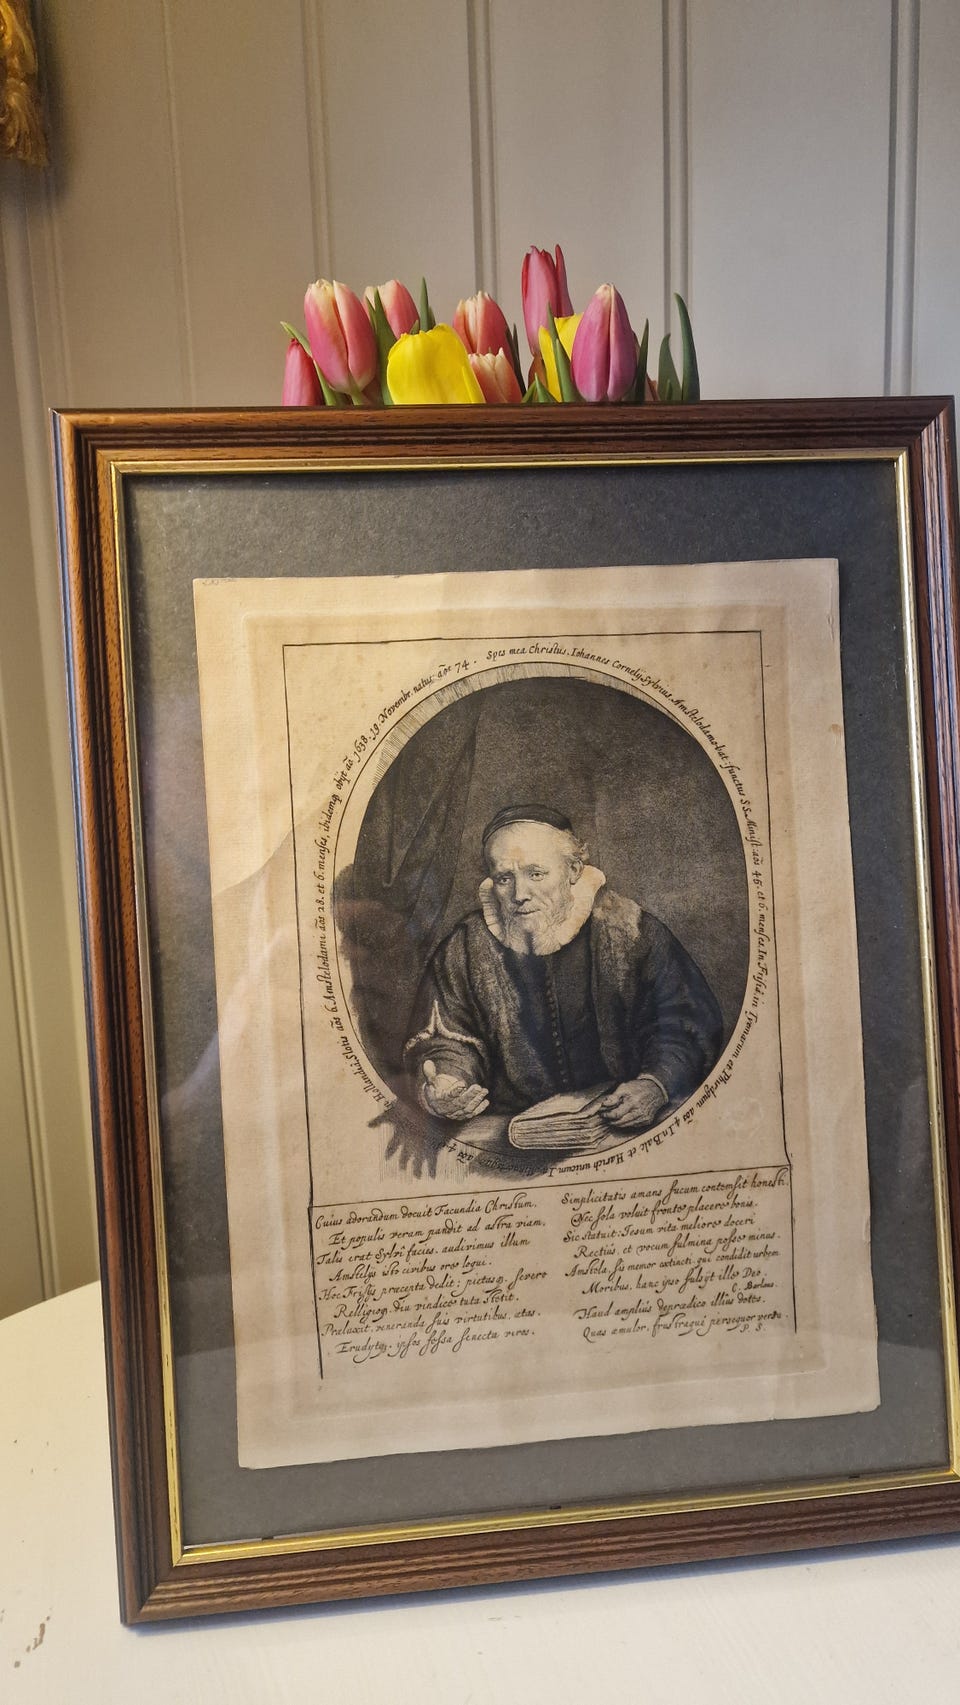 Spes mea Christus. Iohannes Cornelij Sylvius, Amstelodamobat: functus S.S. Minist. aōs 46. et 6. menses. In Frisiâ in Tyemarum et Phirdgum aōs 4. In Balc et Harich unicum. In aōs 4. Hollandiâ Slotis aōs 6. Amstelodami aōs 28. et 6. menses, ibidemq, obijt aō 1638. 19. Novembr. natus aōs 74.
Cuius adorandum docuit Facundia Christum,
Et populis veram pandit ad astra viam,
Talis erat Sylvî facies. audivimus illum
Amstelijs isto civibus ore loqui.
Hoc Frisijs præcepta dedit; pietasq, severo
Relligioq, diu vindice tuta stetit.
Præluxit, veneranda suis virtutibus, ætas.
Erudijtq, ipsos fessa senecta viros.
Simplicitatis amans fucum contemsit honesti,
Nec sola voluit fronte placere bonis.
Sic statuit: Iesum vita meliore doceri
Rectiùs, et vocum fulmina posse minus.
Amstela, sis memor extincti qui condidit urbem
Moribus, hanc ipso fulsijt ille Deo.
C. Barlæus.
Haud ampliús deprædico illius dotes.
Quas æmulor, frustraque persequor versu.
P. S.